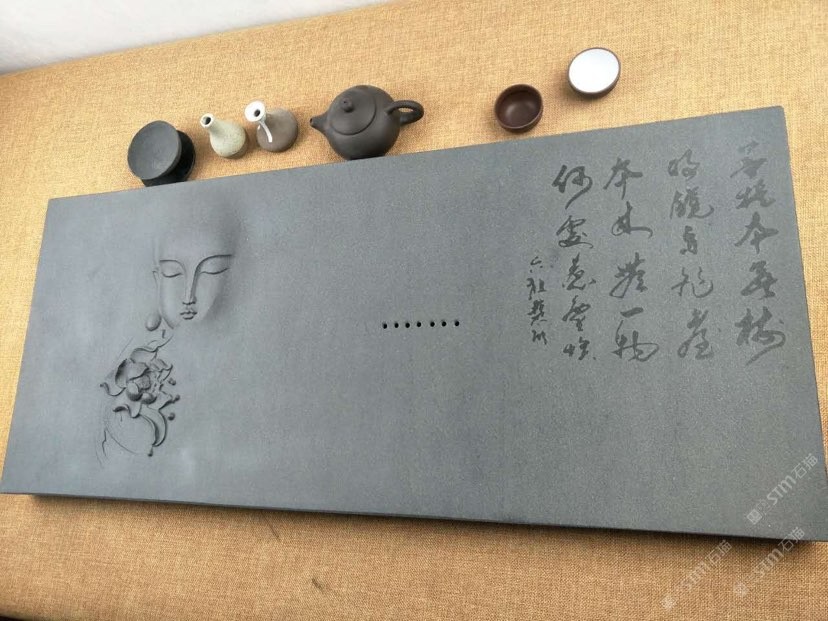 菩提本无树
明镜亦非台
本来无一物
何处惹尘埃
六祖慧能
STM石猫
STM石猫